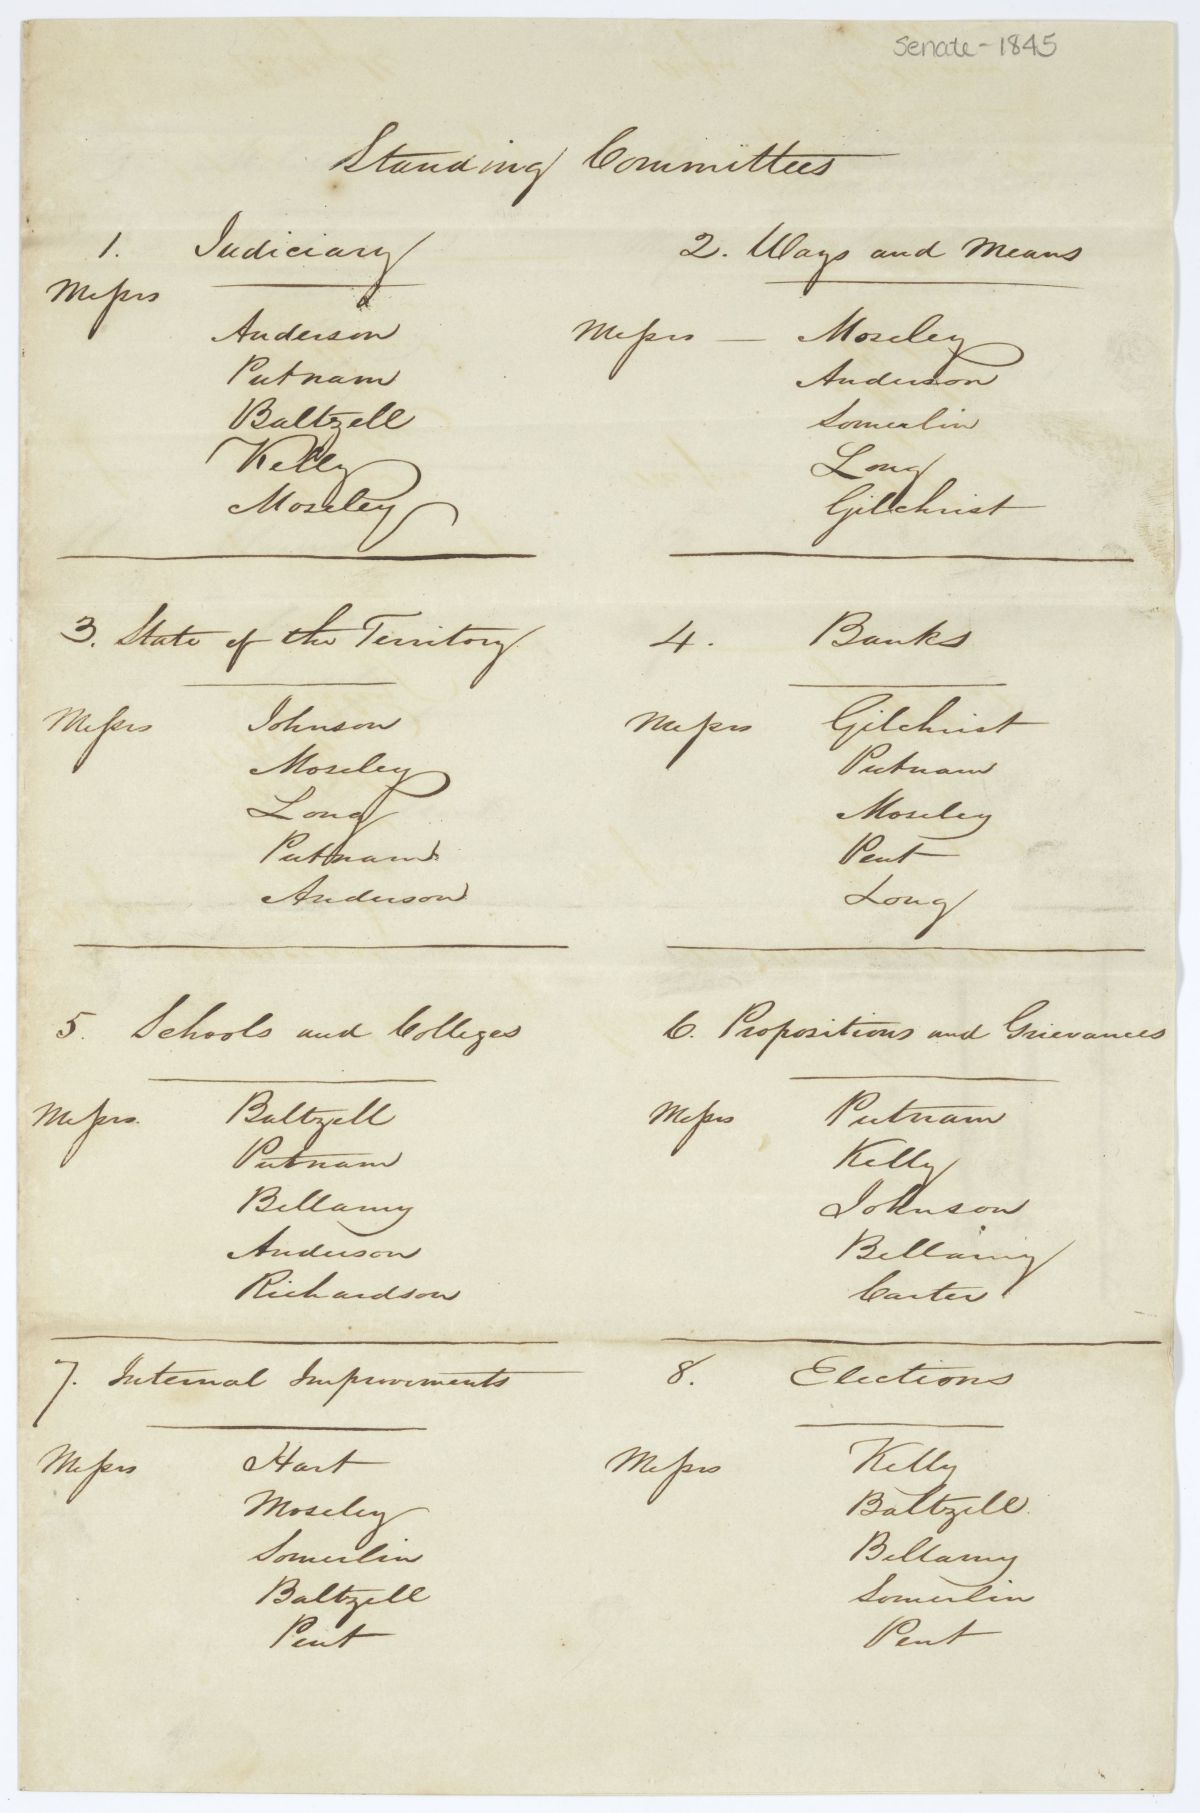 Senate - 1845
Standing Committees
1. Judiciary
Messrs
Anderson
Putnam
Baltzell
Kelly
Moseley
2. Ways and Means
Messrs — Moseley
Anderson
Somerlin
Long
Gilchrist
3. State of the Territory
Messrs Johnson
Moseley
Long
Putnam
Anderson
4. Banks
Messrs Gilchrist
Putnam
Moseley
Pent
Long
5. Schools and Colleges
Messrs. Baltzell
Putnam
Bellamy
Anderson
Richardson
6. Propositions and Grievances
Messrs Putnam
Kelly
Johnson
Bellamy
Carter
7. Internal Improvements
Messrs Hart
Moseley
Somerlin
Baltzell
Pent
8. Elections
Messrs Kelly
Baltzell
Bellamy
Somerlin
Pent